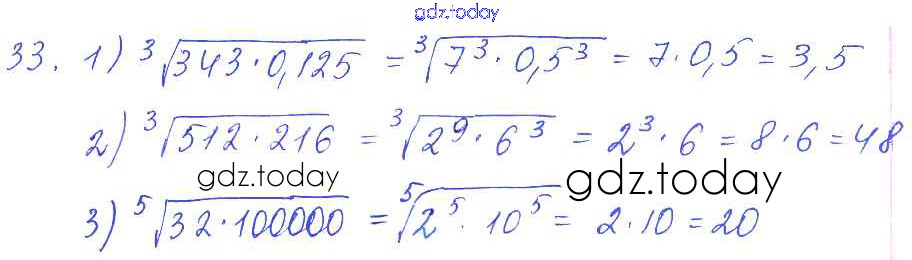 gdz.today
33. 1) ³√343·0,125 = ³√7³·0,5³ = 7·0,5 = 3,5
2) ³√512·216 = ³√2⁹·6³ = 2³·6 = 8·6 = 48
gdz.today
gdz.today
3) ⁵√32·100000 = ⁵√2⁵·10⁵ = 2·10 = 20